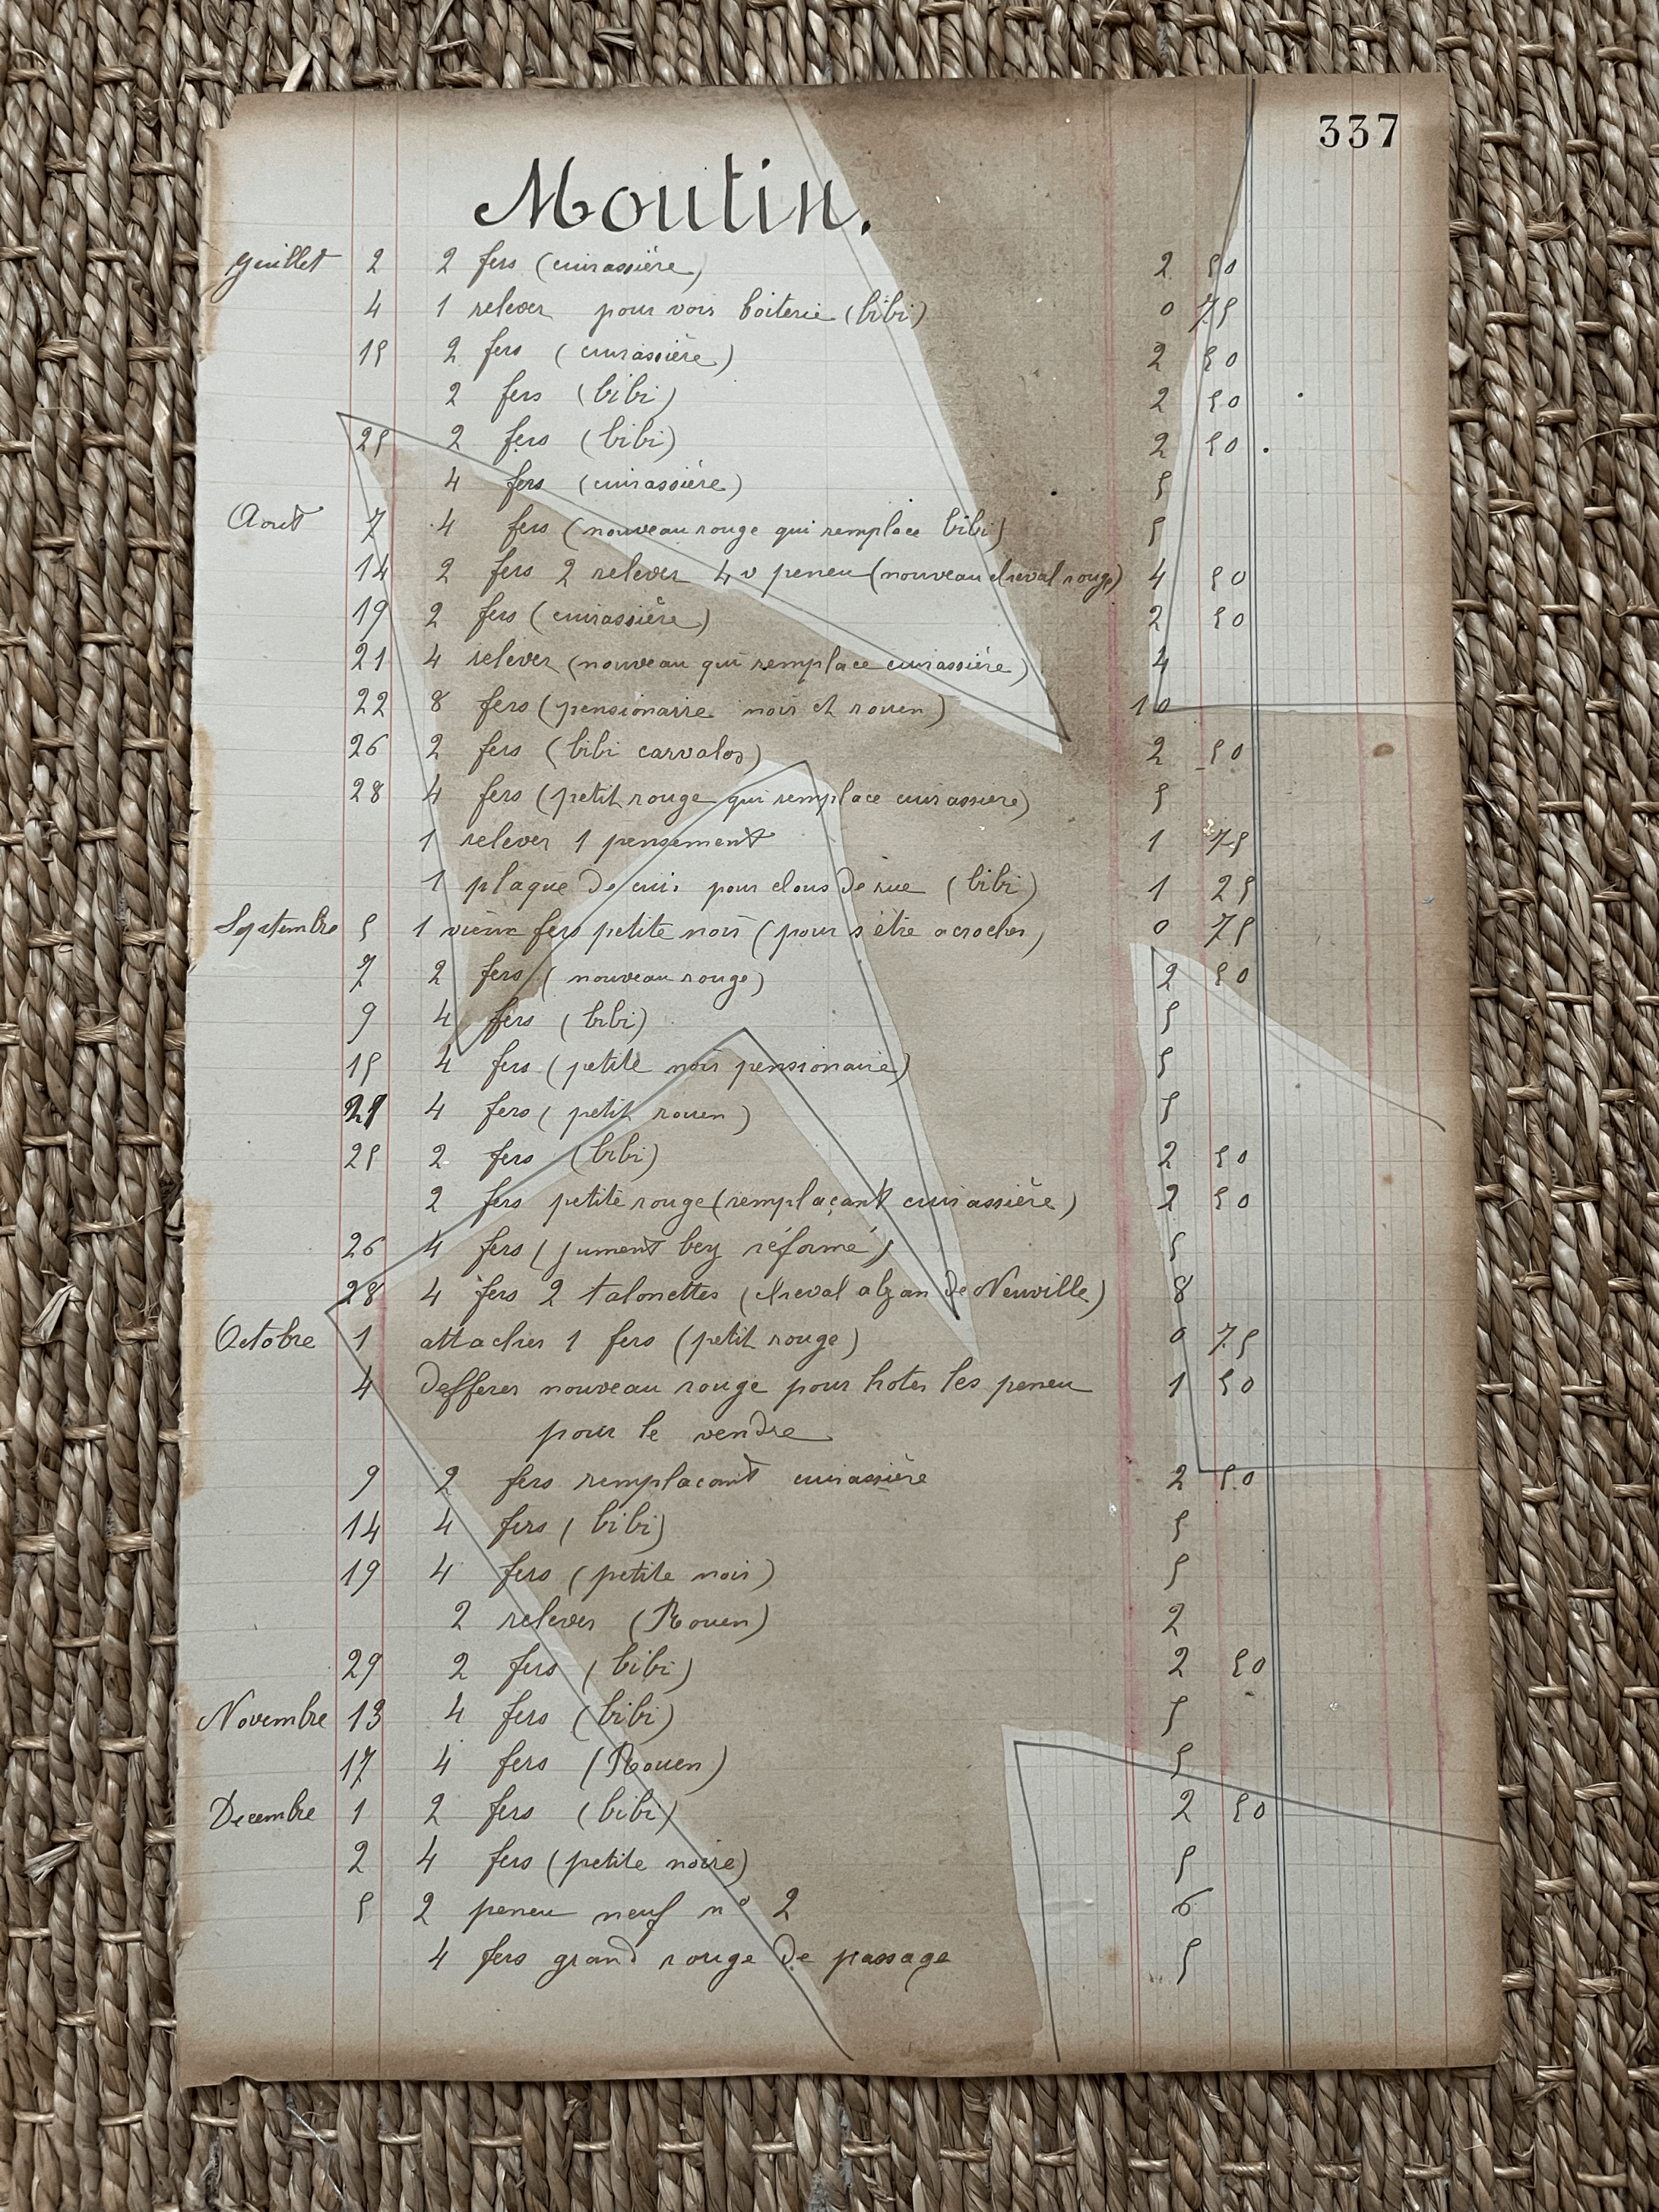 337
Moutin.
Juillet 2 2 fers (cuirassière) 2 50
4 1 relever pour voir boiterie (bibi) 0 75
15 2 fers (cuirassière) 2 50
2 fers (bibi) 2 50
25 2 fers (bibi) 2 50
4 fers (cuirassière) 5
Aout 7 4 fers (nouveau rouge qui remplace bibi) 5
14 2 fers 2 relever 4 v peneu (nouveau cheval rouge) 4 50
19 2 fers (cuirassière) 2 50
21 4 relever (nouveau qui remplace cuirassière) 4
22 8 fers (pensionarre noir et rouen) 10
26 2 fers (bibi carvalos) 2 50
28 4 fers (petit rouge qui remplace cuirassiere) 5
1 relever 1 pensement 1 75
1 plaque de cuir pour clous de rue (bibi) 1 25
Septembre 5 1 vieux fers petite noir (pour s'être acrocher) 0 75
7 2 fers (nouveau rouge) 2 50
9 4 fers (bibi) 5
15 4 fers (petite noir pensionaire) 5
21 4 fers (petit rouen) 5
25 2 fers (bibi) 2 50
2 fers petite rouge (remplaçant cuirassière) 2 50
26 4 fers (jument bey réformé) 5
28 4 fers 2 talonettes (cheval alzan de Neuville) 8
Octobre 1 attacher 1 fers (petit rouge) 0 75
4 defferer nouveau rouge pour hoter les peneu 1 50
pour le vendre
9 2 fers remplacant cuirassière 2 50
14 4 fers (bibi) 5
19 4 fers (petite noir) 5
2 relever (Rouen) 2
29 2 fers (bibi) 2 50
Novembre 13 4 fers (bibi) 5
17 4 fers (Rouen) 5
Decembre 1 2 fers (bibi) 2 50
2 4 fers (petite noire) 5
5 2 peneu neuf n° 2 6
4 fers grand rouge de passage 5